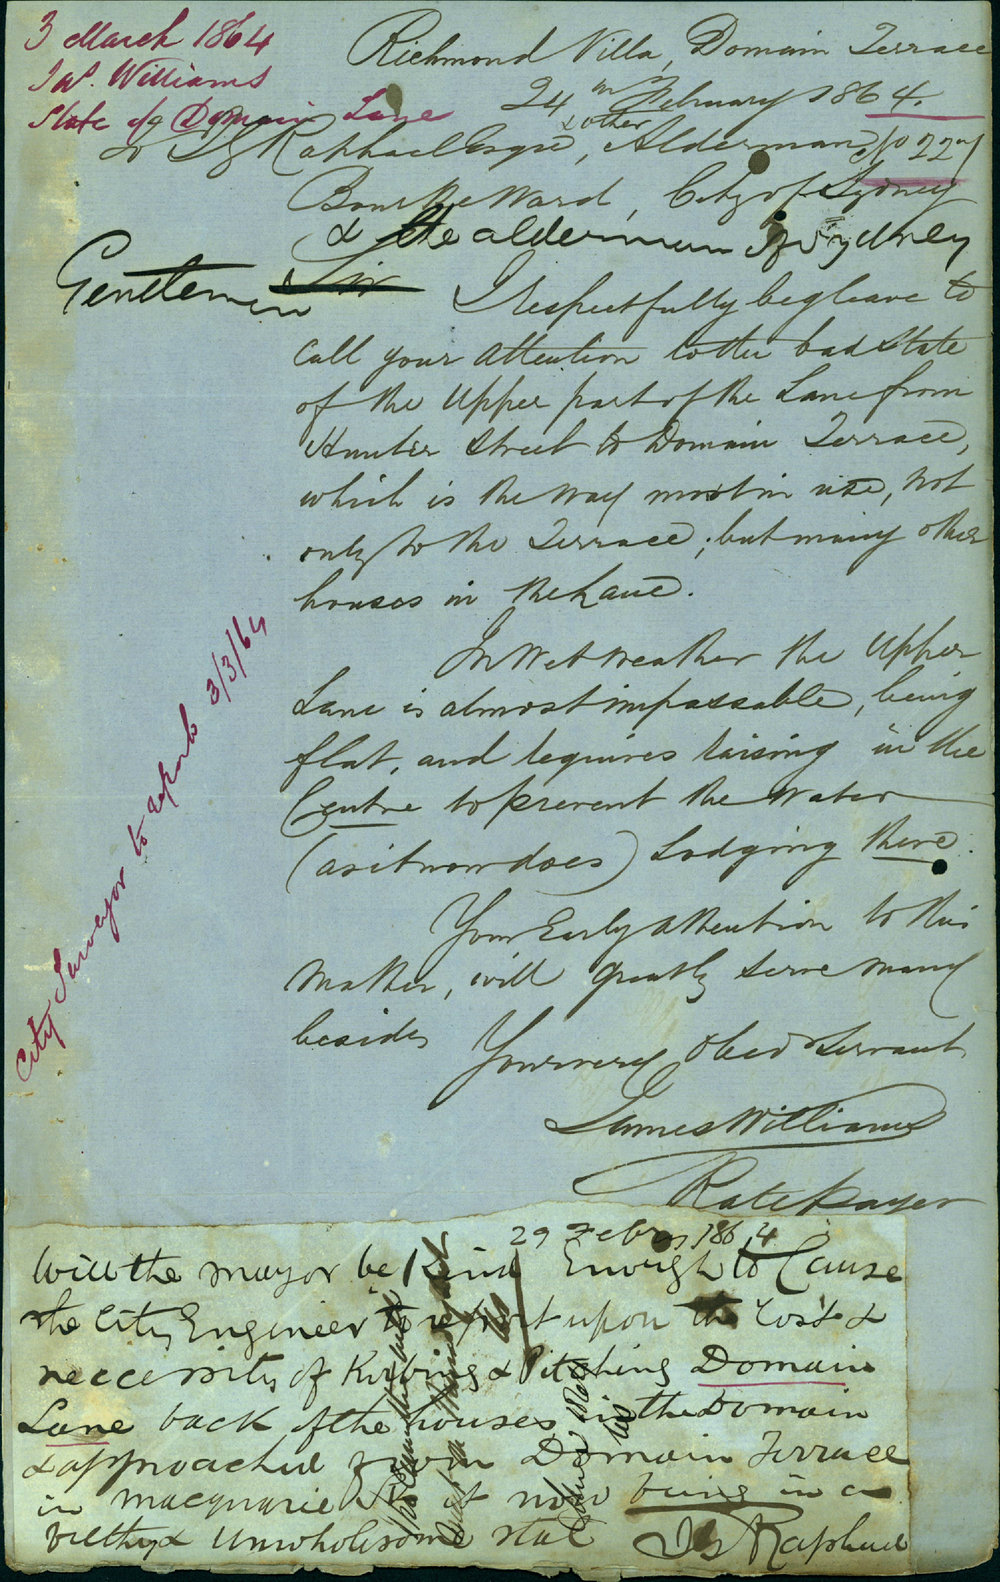 3 March 1864
Jas. Williams
State of Domain Lane
Richmond Villa, Domain Terrace
24th February 1864.
& other
To J G Raphael Esqre, Aldermans
No 227
Bourke Ward, City of Sydney
& the aldermen of Sydney
Gentlemen Sir I respectfully beg leave to
call your attention to the bad state
of the Upper part of the Lane from
Hunter Street to Domain Terrace,
which is the way most in use, not
only to the Terrace; but many other
houses in the Lane.
In Wet weather the Upper
Lane is almost impassable, being
flat, and requires raising in the
Centre to prevent the water
(as it now does) Lodging there.
Your Early attention to this
matter, will greatly serve many
besides
Your very Obed Servant
James Williams
Ratepayer
City Surveyor to report 3/3/64
29 Febry 1864
Will the mayor be Kind Enough to Cause
the City Engineer to report upon the Cost &
neccessity of Kirbing & Pitching Domain
Lane back of the houses in the Domain
& approached from Domain Terrace
in macquarie St it now being in a
filthy & unwholesome state J G Raphael